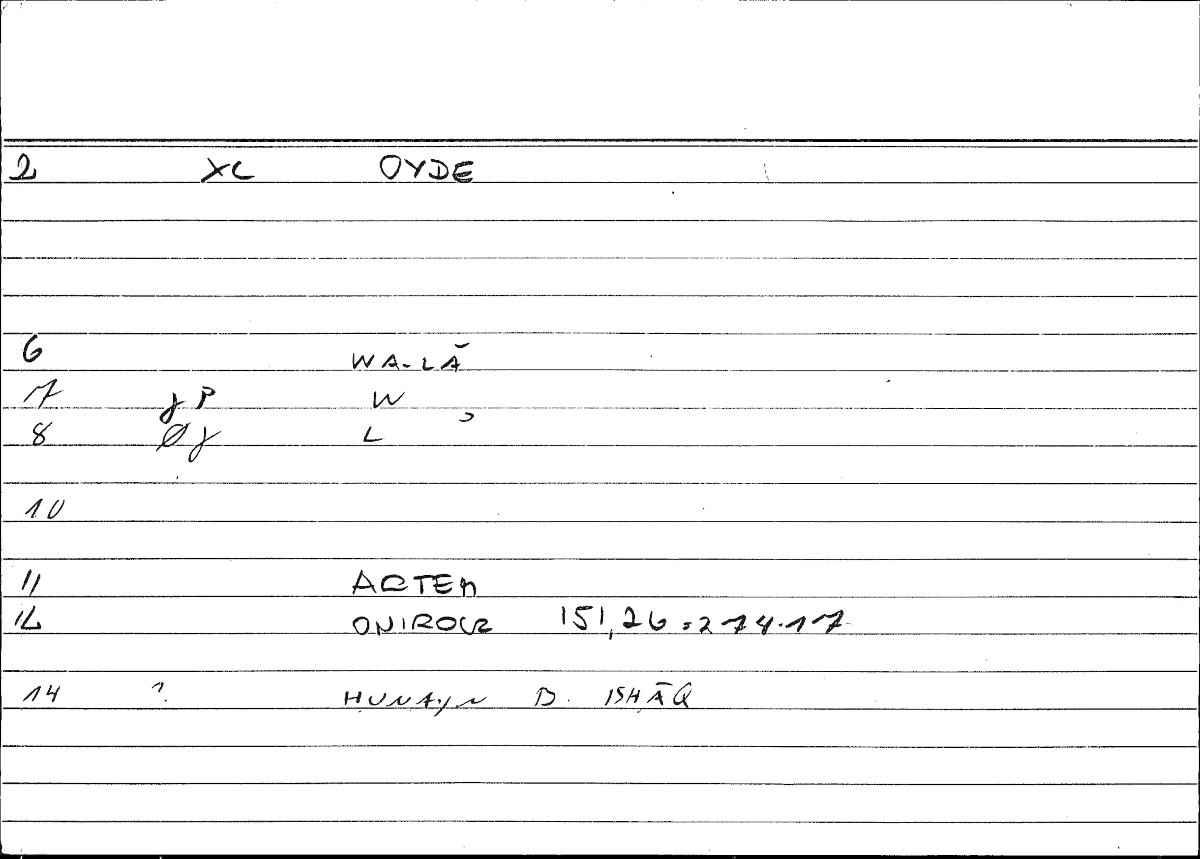 2 XL OYDE
6 WA-LĀ
7 γP W
8 Øγ L
10
11 ARTEM
12 ONIROCR 151,26=274.17
14 ? HUNAYN B. ISHĀQ